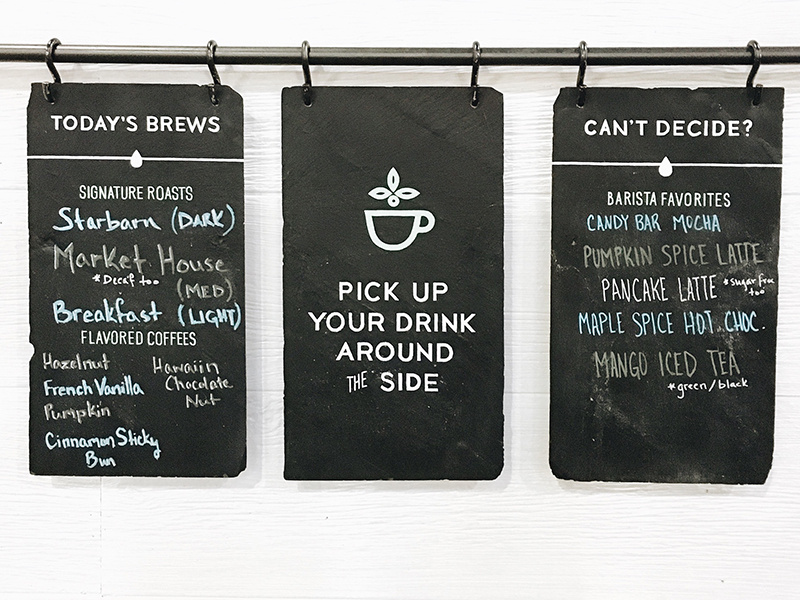 TODAY'S BREWS
SIGNATURE ROASTS
Starbarn (DARK)
Market House
*Decaf too
(MED)
Breakfast (LIGHT)
FLAVORED COFFEES
Hazelnut
French Vanilla
Pumpkin
Cinnamon Sticky
Bun
Hawaiin
Chocolate
Nut
PICK UP
YOUR DRINK
AROUND
THE SIDE
CAN'T DECIDE?
BARISTA FAVORITES
CANDY BAR MOCHA
PUMPKIN SPICE LATTE
PANCAKE LATTE *sugar free
too
MAPLE SPICE HOT CHOC.
MANGO ICED TEA
*green/black